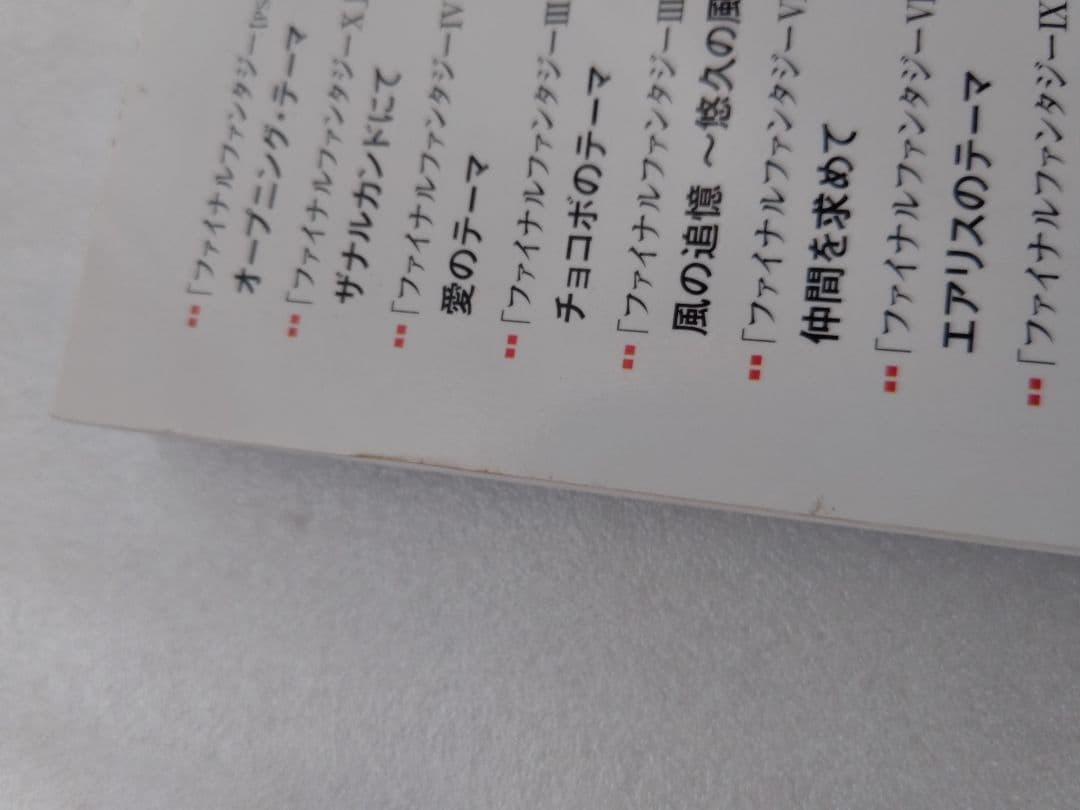 「ファイナルファンタジーI(PS
オープニング・テーマ
「ファイナルファンタジーX」
ザナルカンドにて
「ファイナルファンタジーIV
愛のテーマ
「ファイナルファンタジーIII
チョコボのテーマ
「ファイナルファンタジーIII
風の追憶 ～悠久の風
「ファイナルファンタジーV
仲間を求めて
「ファイナルファンタジーVI
エアリスのテーマ
「ファイナルファンタジーIX